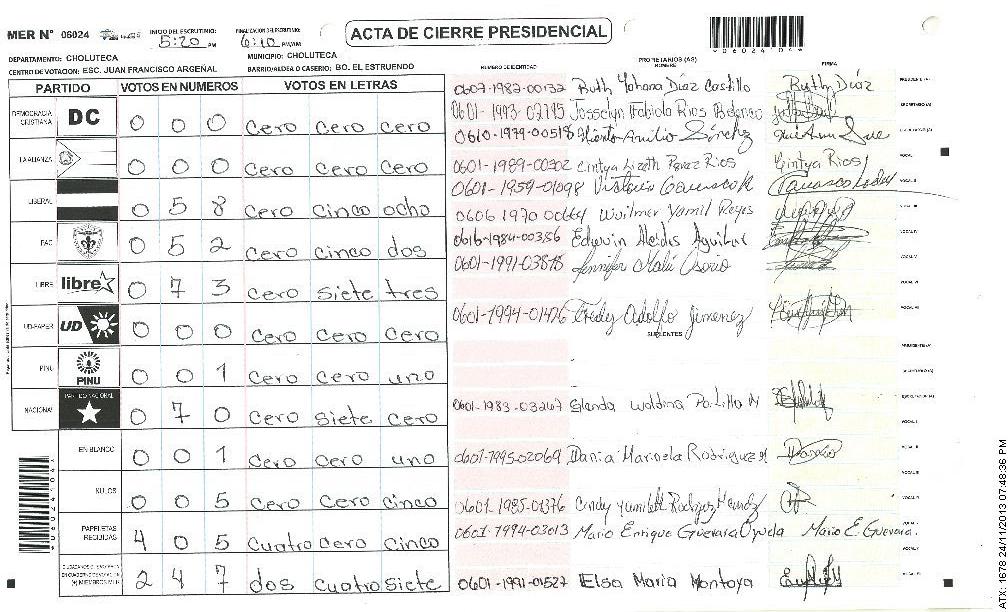 MER N° 06024
INICIO DEL ESCRUTINIO: 5:20 PM
FINALIZACION DEL ESCRUTINIO: 6:10 PM/AM
ACTA DE CIERRE PRESIDENCIAL
*06024104*
DEPARTAMENTO: CHOLUTECA
MUNICIPIO: CHOLUTECA
CENTRO DE VOTACION: ESC. JUAN FRANCISCO ARGEÑAL
BARRIO/ALDEA O CASERIO: BO. EL ESTRUENDO
PARTIDO VOTOS EN NUMEROS VOTOS EN LETRAS
DEMOCRACIA CRISTIANA DC 0 0 0 cero cero cero
LA ALIANZA 0 0 0 cero cero cero
LIBERAL 0 5 8 cero cinco ocho
PAC 0 5 2 cero cinco dos
LIBRE libre 0 7 3 cero siete tres
UD-FAPER UD 0 0 0 cero cero cero
PINU PINU 0 0 1 cero cero uno
NACIONAL PARTIDO NACIONAL 0 7 0 cero siete cero
EN BLANCO 0 0 1 cero cero uno
NULOS 0 0 5 cero cero cinco
PAPELETAS RECIBIDAS 4 0 5 cuatro cero cinco
(+) MIEMBROS MER 2 4 7 dos cuatro siete
NUMERO DE IDENTIDAD PROPIETARIOS (AS) NOMBRE FIRMA
0607-1982-00132 Ruth Yohana Díaz Castillo Ruth Díaz PRESIDENTE (A)
Josselyn Fabiola Rios SECRETARIO (A)
0610-1979-00518 Emilio Sánchez
0601-1989-00302 Cintya Lizeth Perez Rios Cintya Rios VOCAL I
0601-1959-01098 Carrasco VOCAL II
0606 1970 Wilmer Yamil Reyes VOCAL III
0616-1984-00386 Edwin Alcides Aguilar VOCAL IV
0601-1991-03878 Jennifer Osorio VOCAL V
0601-1994-01476 Fredy Adolfo Jimenez
SUPLENTES
0601-1983-03267 Glenda Waldina Padilla M
0601-1995-02069 Dania Marinela Rodriguez M
0601-1985-01376 Cindy Yamileth
0601-1994-03013 Mario Enrique Guevara Mario E. Guevara.
0601-1991-01527 Elsa Maria Montoya
*06024104*
24/11/2013 07:48:36 PM